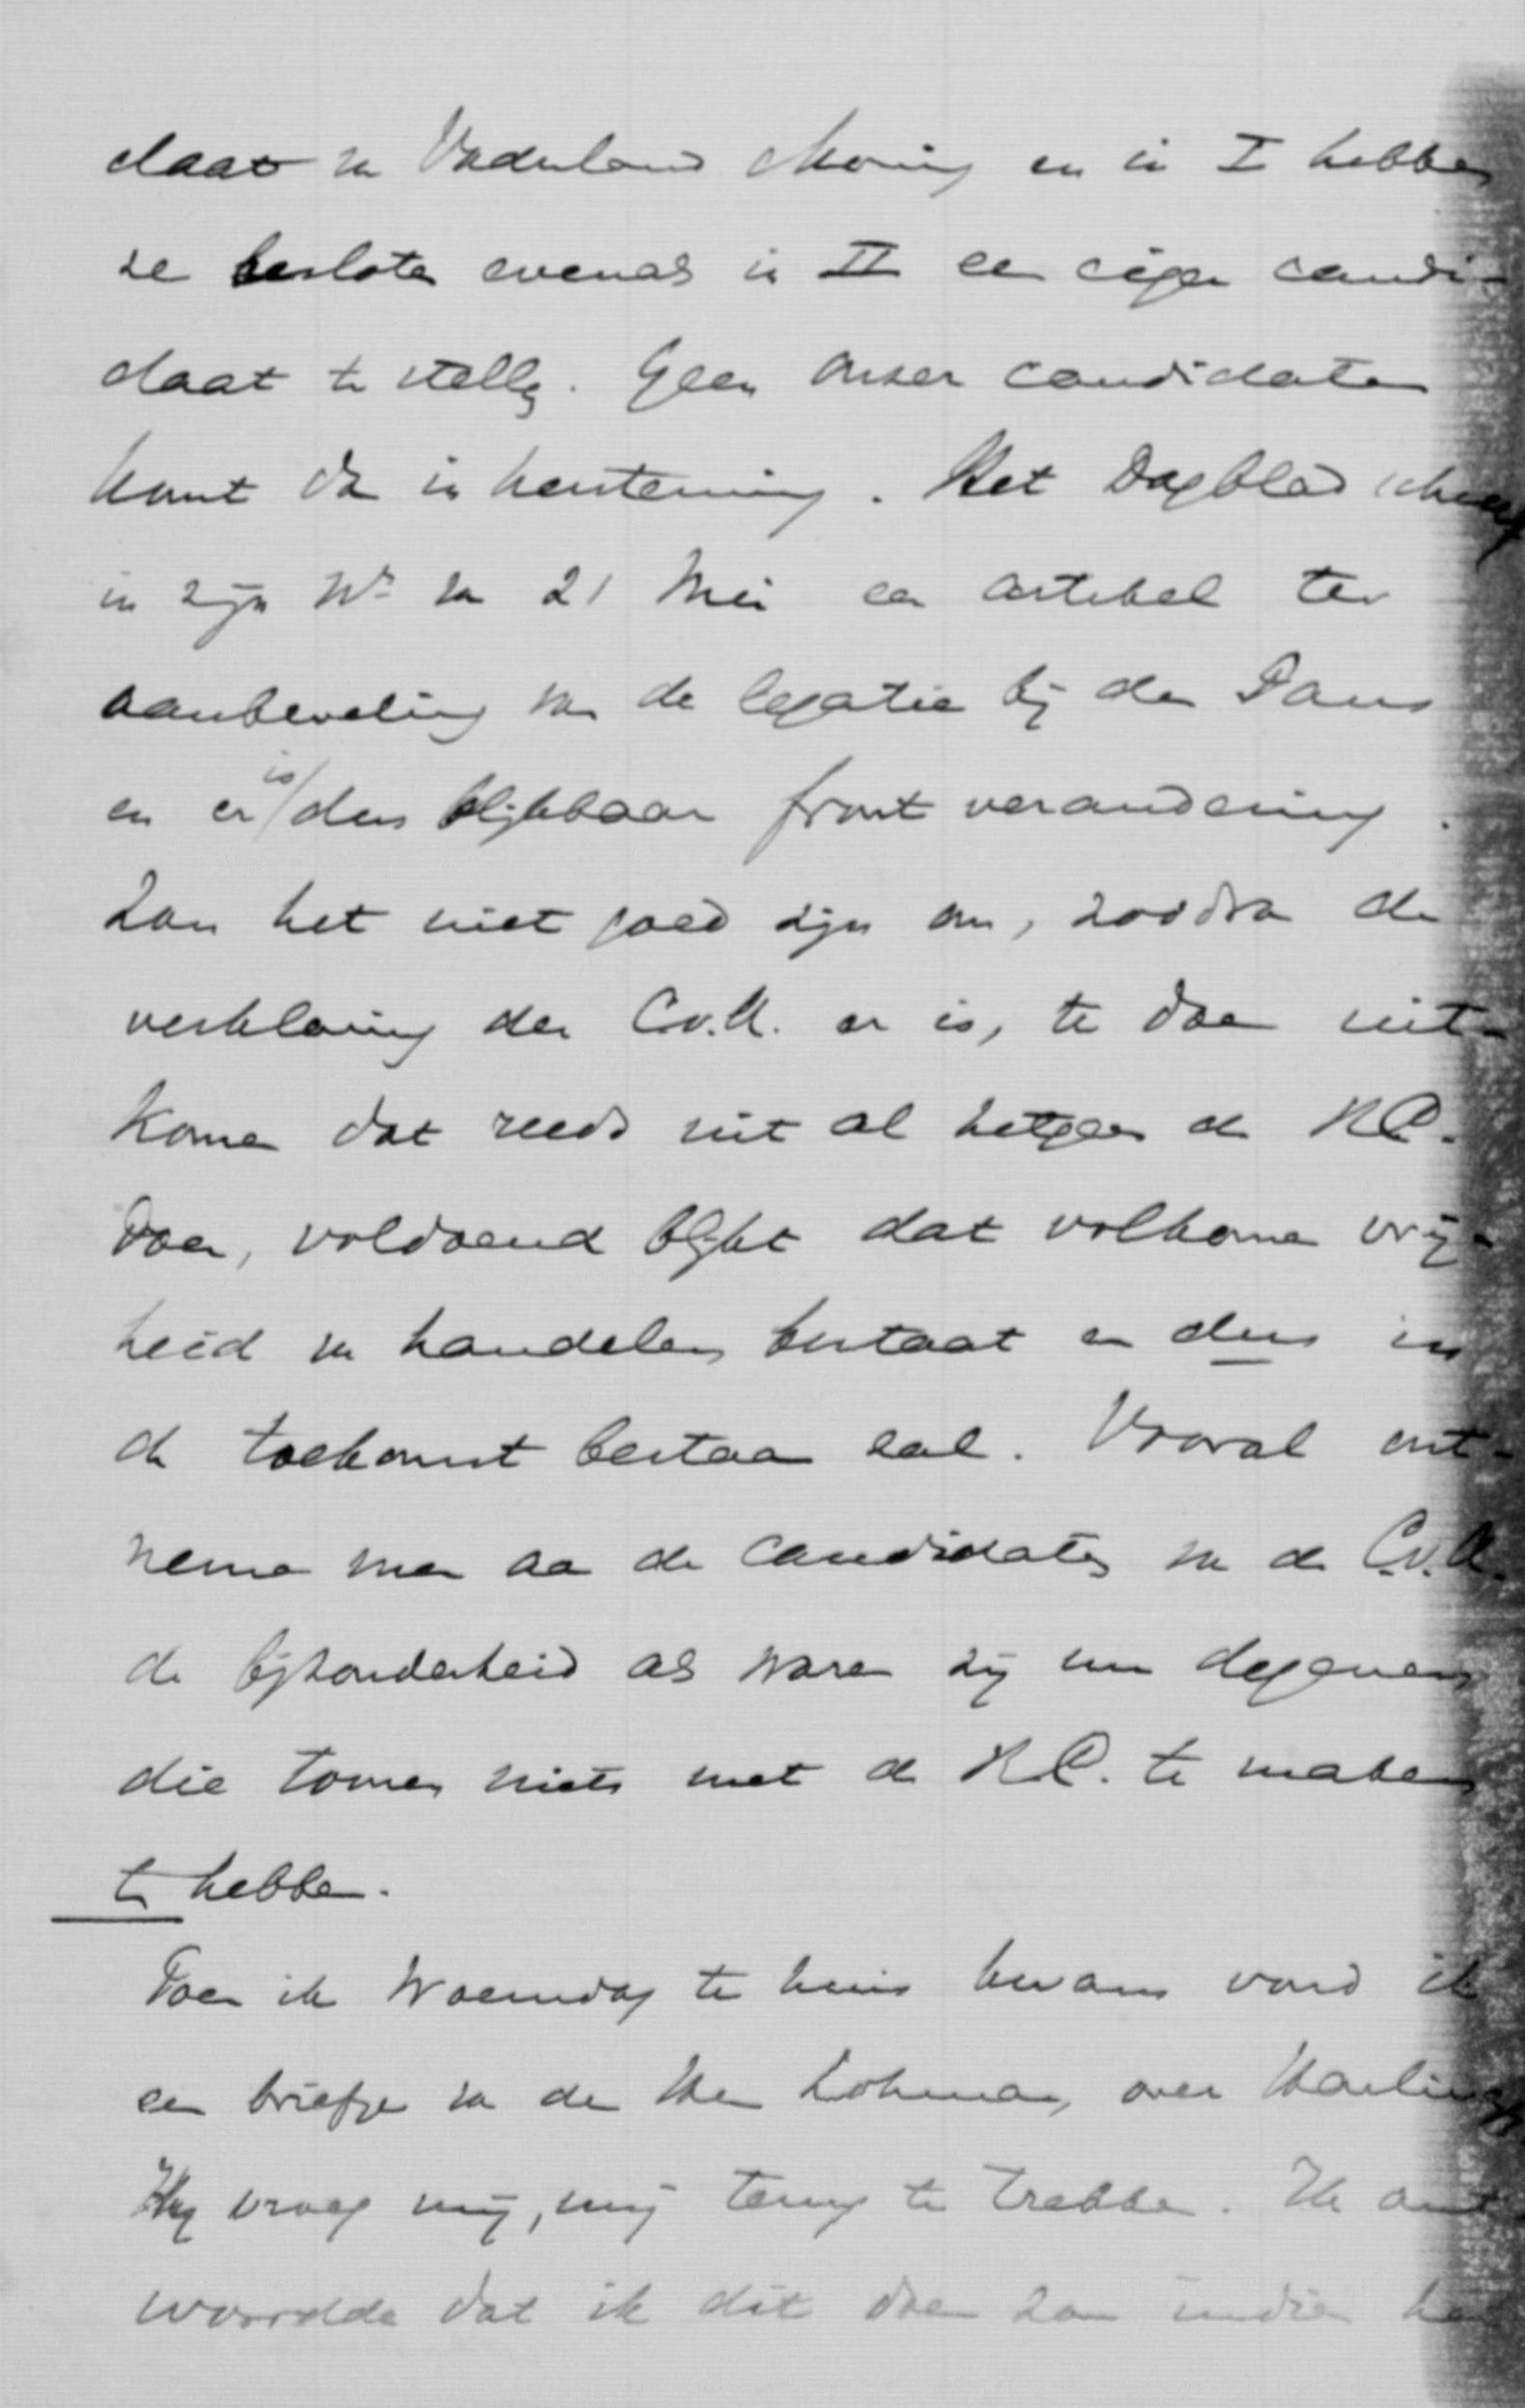 daat van Vaderland & Koning en in I hebben
ze besloten evenals in II een eigen candi-
daat te stellen. Geen onzer candidaten
komt dan in herstemming. Het Dagblad schreef
in zijn No van 21 Mei een artikel ter
aanbeveling van de legatie bij den Paus
en er is dus blijkbaar front verandering.
Zou het niet goed zijn om, zoodra de
verklaring der C.v.K. er is, te doen uit-
komen dat reeds uit al hetgeen de R.C.
doen, voldoend blijkt dat volkomen vrij-
heid van handelen bestaat en dus in
de toekomst bestaan zal. Vooral ont-
neme men aan de candidaten van de C.v.K.
de bijzonderheid als waren zij nu degenen
die tonen niets met de R.C. te maken
te hebben.
Toen ik Woensdag te huis kwam vond ik
een briefje van den Heer Lohman, over Harlingen.
Hij vroeg mij, mij terug te trekken. Ik ant
woordde dat ik dit doen zou indien